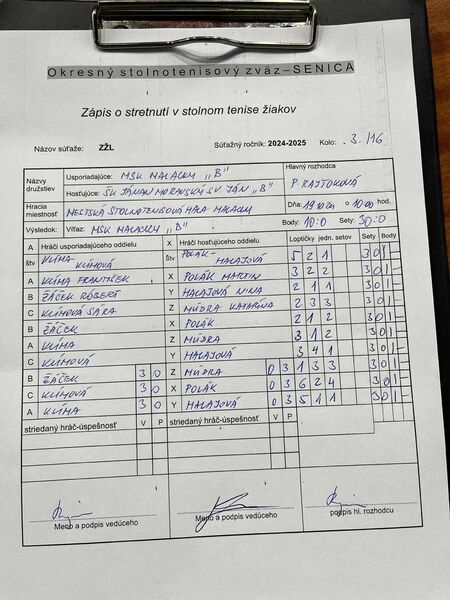 Okresný stolnotenisový zväz – SENICA
Zápis o stretnutí v stolnom tenise žiakov
Názov súťaže: ZŽL Súťažný ročník: 2024-2025 Kolo: 3./16
Názvy družstiev Usporiadajúce: MSK MALACKY „B" Hlavný rozhodca
Hosťujúce: ŠK JÁVAN MORAVSKÝ SV. JÁN „B" P. RAJTOKOVÁ
Hracia miestnosť MESTSKÁ STOLNOTENISOVÁ HALA MALACKY Dňa: o 10:00 hod.
Výsledok: Víťaz: MSK MALACKY „B" Body: 10:0 Sety: 30:0
A Hráči usporiadajúceho oddielu X Hráči hosťujúceho oddielu Loptičky jedn. setov Sety Body
štv KLIMA- KLIMOVÁ Štv POLÁK- MALAJOVÁ 5 2 1 3 0 1 –
A KLIMA FRANTIŠEK X POLÁK MARTIN 3 2 2 3 0 1 –
B ŽÁČEK RÓBERT Y MALAJOVÁ NINA 2 1 1 3 0 1 –
C KLIMOVÁ SÁRA Z MÚDRA KATARÍNA 2 3 3 3 0 1 –
B ŽÁČEK X POLÁK 2 1 2 3 0 1 –
A KLIMA Z MÚDRA 3 1 2 3 0 1 –
C KLIMOVÁ Y MALAJOVÁ 3 4 1 3 0 1 –
B ŽÁČEK 3 0 Z MÚDRA 0 3 1 3 3 3 0 1 –
C KLIMOVÁ 3 0 X POLÁK 0 3 6 2 4 3 0 1 –
A KLIMA 3 0 Y MALAJOVÁ 0 3 5 1 1 3 0 1 –
striedaný hráč-úspešnosť V P striedaný hráč-úspešnosť V P
Meno a podpis vedúceho Meno a podpis vedúceho podpis hl. rozhodcu